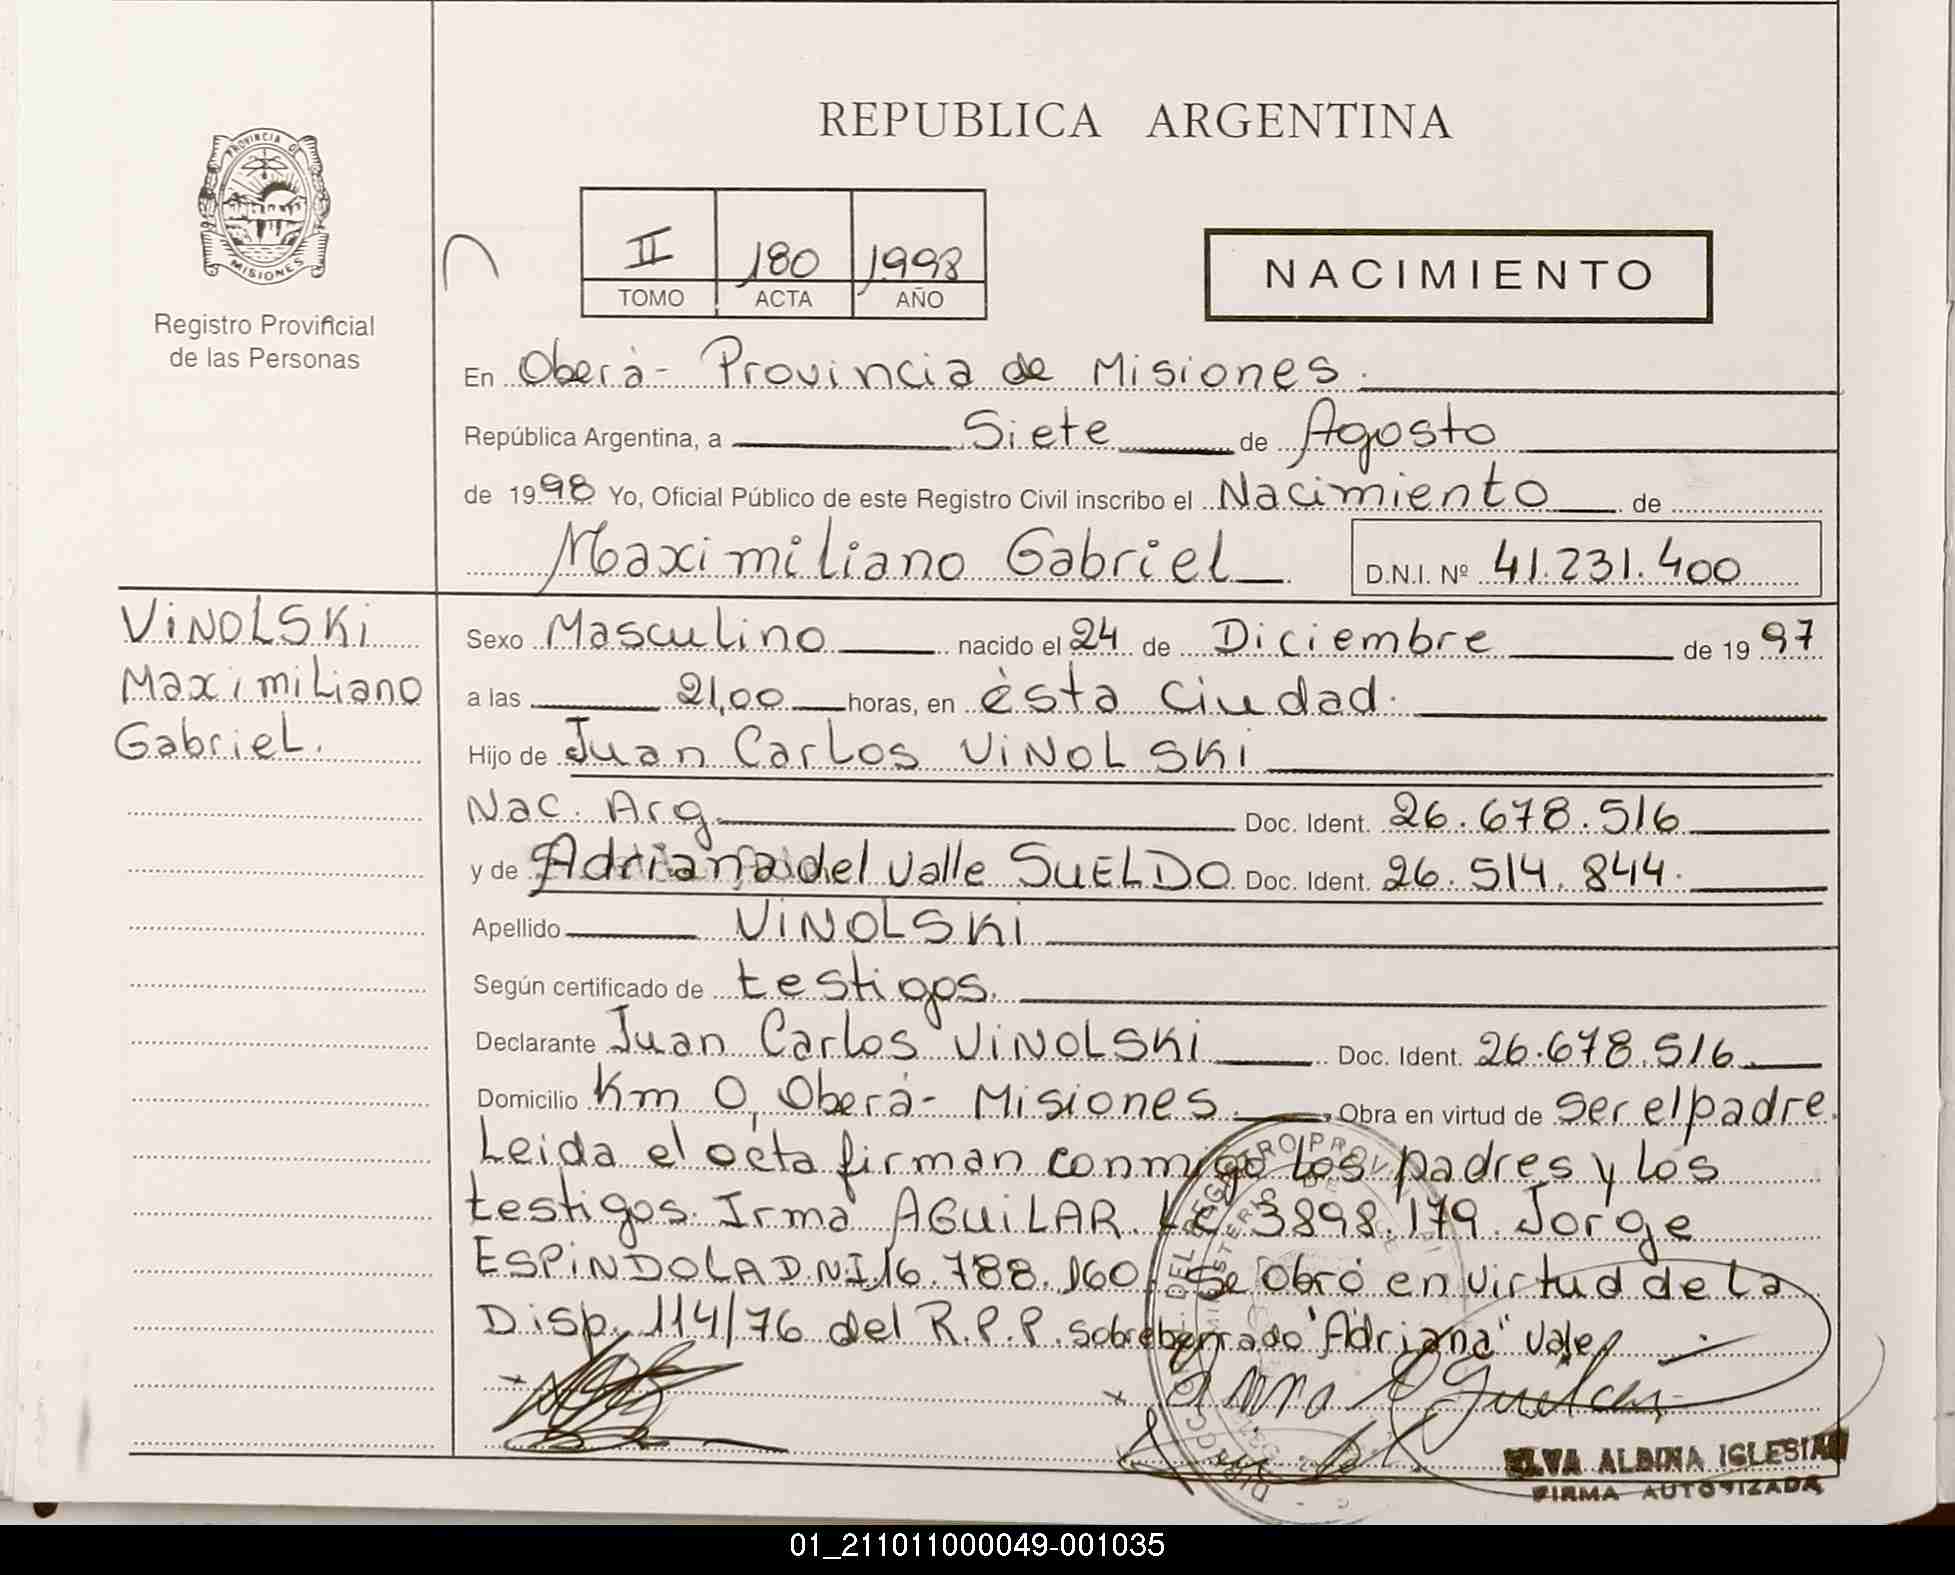 REPUBLICA ARGENTINA
PROVINCIA DE
MISIONES
Registro Provincial
de las Personas
II 180 1998
TOMO ACTA AÑO
NACIMIENTO
En Oberá - Provincia de Misiones.
República Argentina, a Siete de Agosto
de 1998 Yo, Oficial Público de este Registro Civil inscribo el Nacimiento de
Maximiliano Gabriel D.N.I. Nº 41.231.400
VINOLSKi
Maximiliano
Gabriel.
Sexo Masculino nacido el 24 de Diciembre de 1997
a las 21,00 horas, en ésta Ciudad.
Hijo de Juan Carlos VINOLSKi
Nac. Arg. Doc. Ident. 26.678.516
y de Adriana del Valle SUELDO Doc. Ident. 26.514.844.
Apellido VINOLSKi
Según certificado de testigos.
Declarante Juan Carlos VINOLSKi Doc. Ident. 26.678.516
Domicilio Km 0, Oberá - Misiones. Obra en virtud de ser el padre.
Leida el acta firman conmigo los padres y los
testigos Irma AGUILAR. LC 3898.179. Jorge
ESPINDOLA D.N.I. 16.788.160. Se Obró en virtud de la
Disp. 114/76 del R.P.P. sobreberrado "Adriana" Vale
ELVA ALBINA IGLESIAS
FIRMA AUTORIZADA
01_211011000049-001035